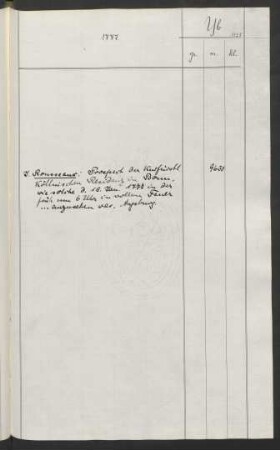 1777
Yb
gr. m. kl.
F. Rousseaux: Prospect der Kurfürstl. 9600
Köllnischen Residenz in Bonn,
wie solche d. 15. Jan. 1777 in der
früh um 6 Uhr in vollem Feuer
anzusehen war. Augsburg.